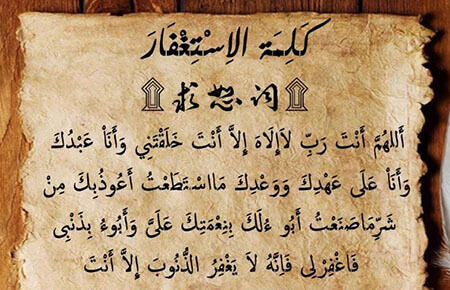 كَلِمَة الاِسْتِغْفَارَ
۩ 求恕词 ۩
أَللهُمَّ أَنْتَ رَبِّ لاَإِلَاهَ إِلاَّ أَنْتَ خَلَقْتَنِي وَأَنَاْ عَبْدُكَ
وَأَنَاْ عَلَى عَهْدِكَ وَوَعْدِكَ مَااسْتَطَعْتُ أَعُوذُبِكَ مِنْ
شَرِّمَاصَنَعْتُ أَبُو ءُلَكَ بِنِعْمَتِكَ عَلَيَّ وَأَبُوءُ بِذَنْبِى
فَاغْفِرْلِى فَاِنَّهُ لاَ يَغْفِرُ الذُّنُوبَ إِلاَّ أَنْتَ